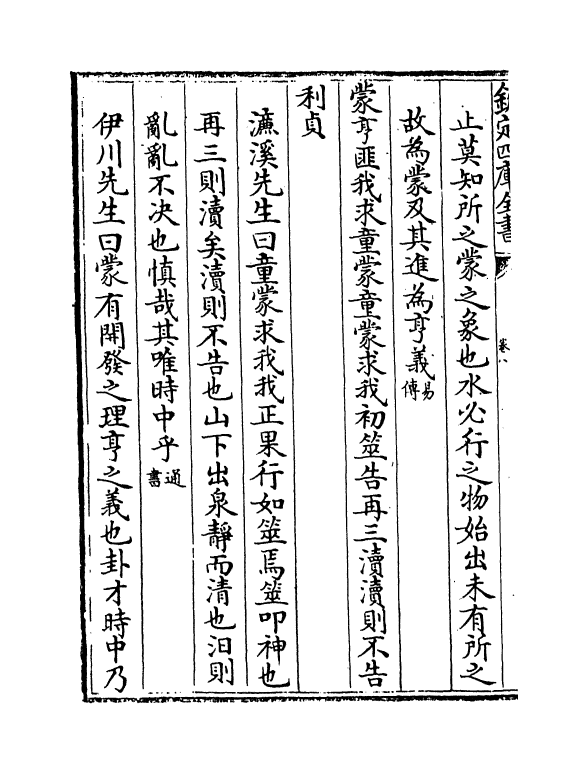 欽定四庫全書
卷八
止莫知所之蒙之象也水必行之物始出未有所之
故為蒙及其進為亨義易傳
蒙亨匪我求童蒙童蒙求我初筮告再三瀆瀆則不告
利貞
濂溪先生曰童蒙求我我正果行如筮焉筮叩神也
再三則瀆矣瀆則不告也山下出泉靜而清也汩則
亂亂不决也慎哉其唯時中乎通書
伊川先生曰蒙有開發之理亨之義也卦才時中乃